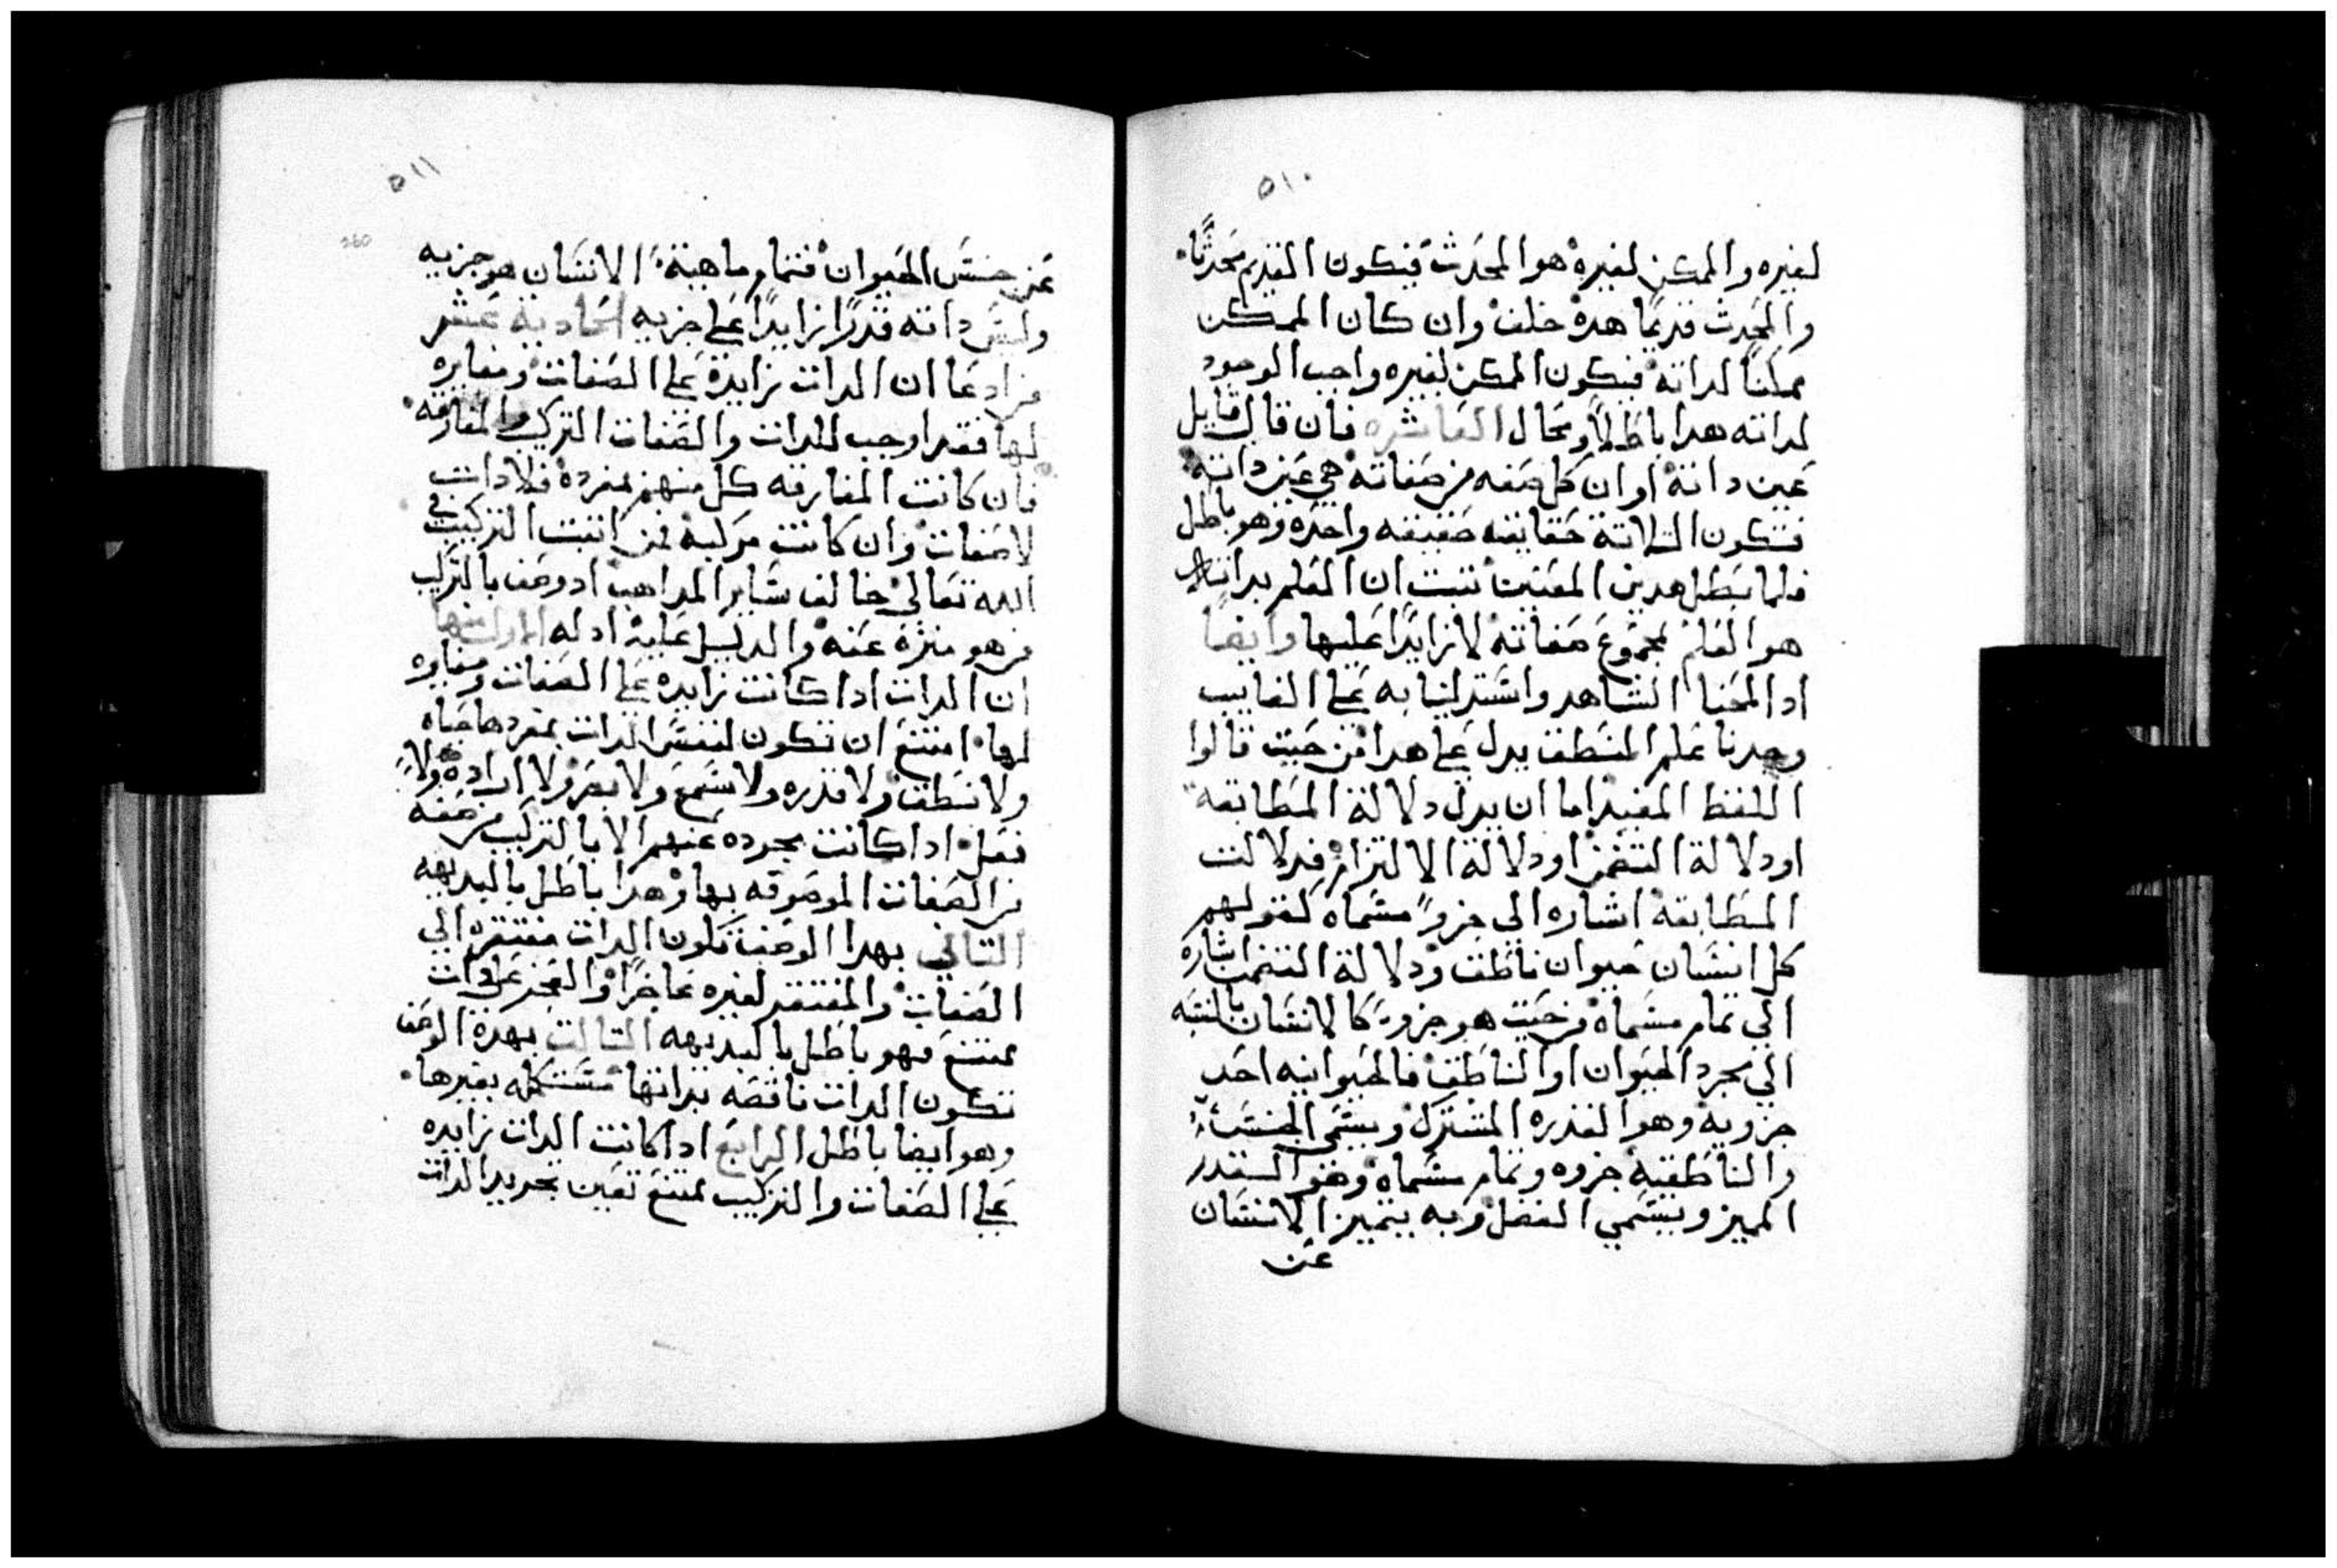 ٥١٠
لغيره والممكن لغيره هو المحدث فيكون القديم محدثًا
والمحدث قديمًا هذه خلف وان كان الممكن
ممكنًا لداته فيكون الممكن لغيره واجب الوجود
لداته هدا باطلًا ومحال العاشره فان قال قايل
عين داته او ان كل صفه من صفاته هي عين داته
فتكون التلاتة حقايقه حقيقه واحده وهو باطل
فلما بطل هدين المعنين تبت ان العلم بدات الله
هو العلم بمجموع صفاته لا زايدًا عليها وايضًا
ادا لمحنا الشاهد واستدلينا به على الغايب
وجدنا علم المنطق يدل على هدا من حيت قالوا
اللفظ المفيد اما ان يدل دلالة المطابقه
او دلالة التضمن او دلالة الالتزام فدلالت
المطابقة اشاره الى جزو مسماه كقولهم
كل انسان حيوان ناطق ودلالة التضمن اشاره
الي تمام مسماه من حيت هو جزو كالانسان بالنسبه
الي مجرد الحيوان او الناطق فالحيوانيه احد
جزويه وهو القدره المشترك ويسمى الجنس
والناطقية جزوه وتمام مسماه وهو القدر
المميز ويسمي الفصل وبه يتميز الانسان
عن
٥١١
260
عن جنس الحيوان فتمام ماهية الانسان هو جزيه
وليس داته قدرًا زايدًا على جزيه الحادية عشر
من ادعا ان الدات زايدة على الصفات ومغايره
لها فقد اوجب للدات والصفات التركيب والمفارقه
فان كانت المفارقه كل منهم بمفرده فلا دات
لا صفات وان كانت مركبه فمن اتبت التركيب في
الله تعالي خالف ساير المداهب اد وصف بالتركيب
من هو منزه عنه والدليل عليه ادله الاول منها
ان الدات ادا كانت زايده على الصفات ومغايره
لها امتنع ان تكون لنفس الدات بمفردها حياه
ولا نطق ولا قدره ولا سمع ولا بصر ولا اراده ولا
فعل ادا كانت مجرده عنهم الا بالتركيب من صفه
من الصفات الموصوفه بها وهدا باطل بالبديهه
التاني بهدا الوصف تكون الدات مفتقره الي
الصفات والمفتقر لغيره عاجزًا والعجز على دات
ممتنع فهو باطل بالبديهه التالت بهدة الوصف
تكون الدات ناقصه بداتها مستكمله بغيرها
وهو ايضا باطل الرابع ادا كانت الدات زايده
على الصفات والتركيب ممتنع تعين تجريد الدات